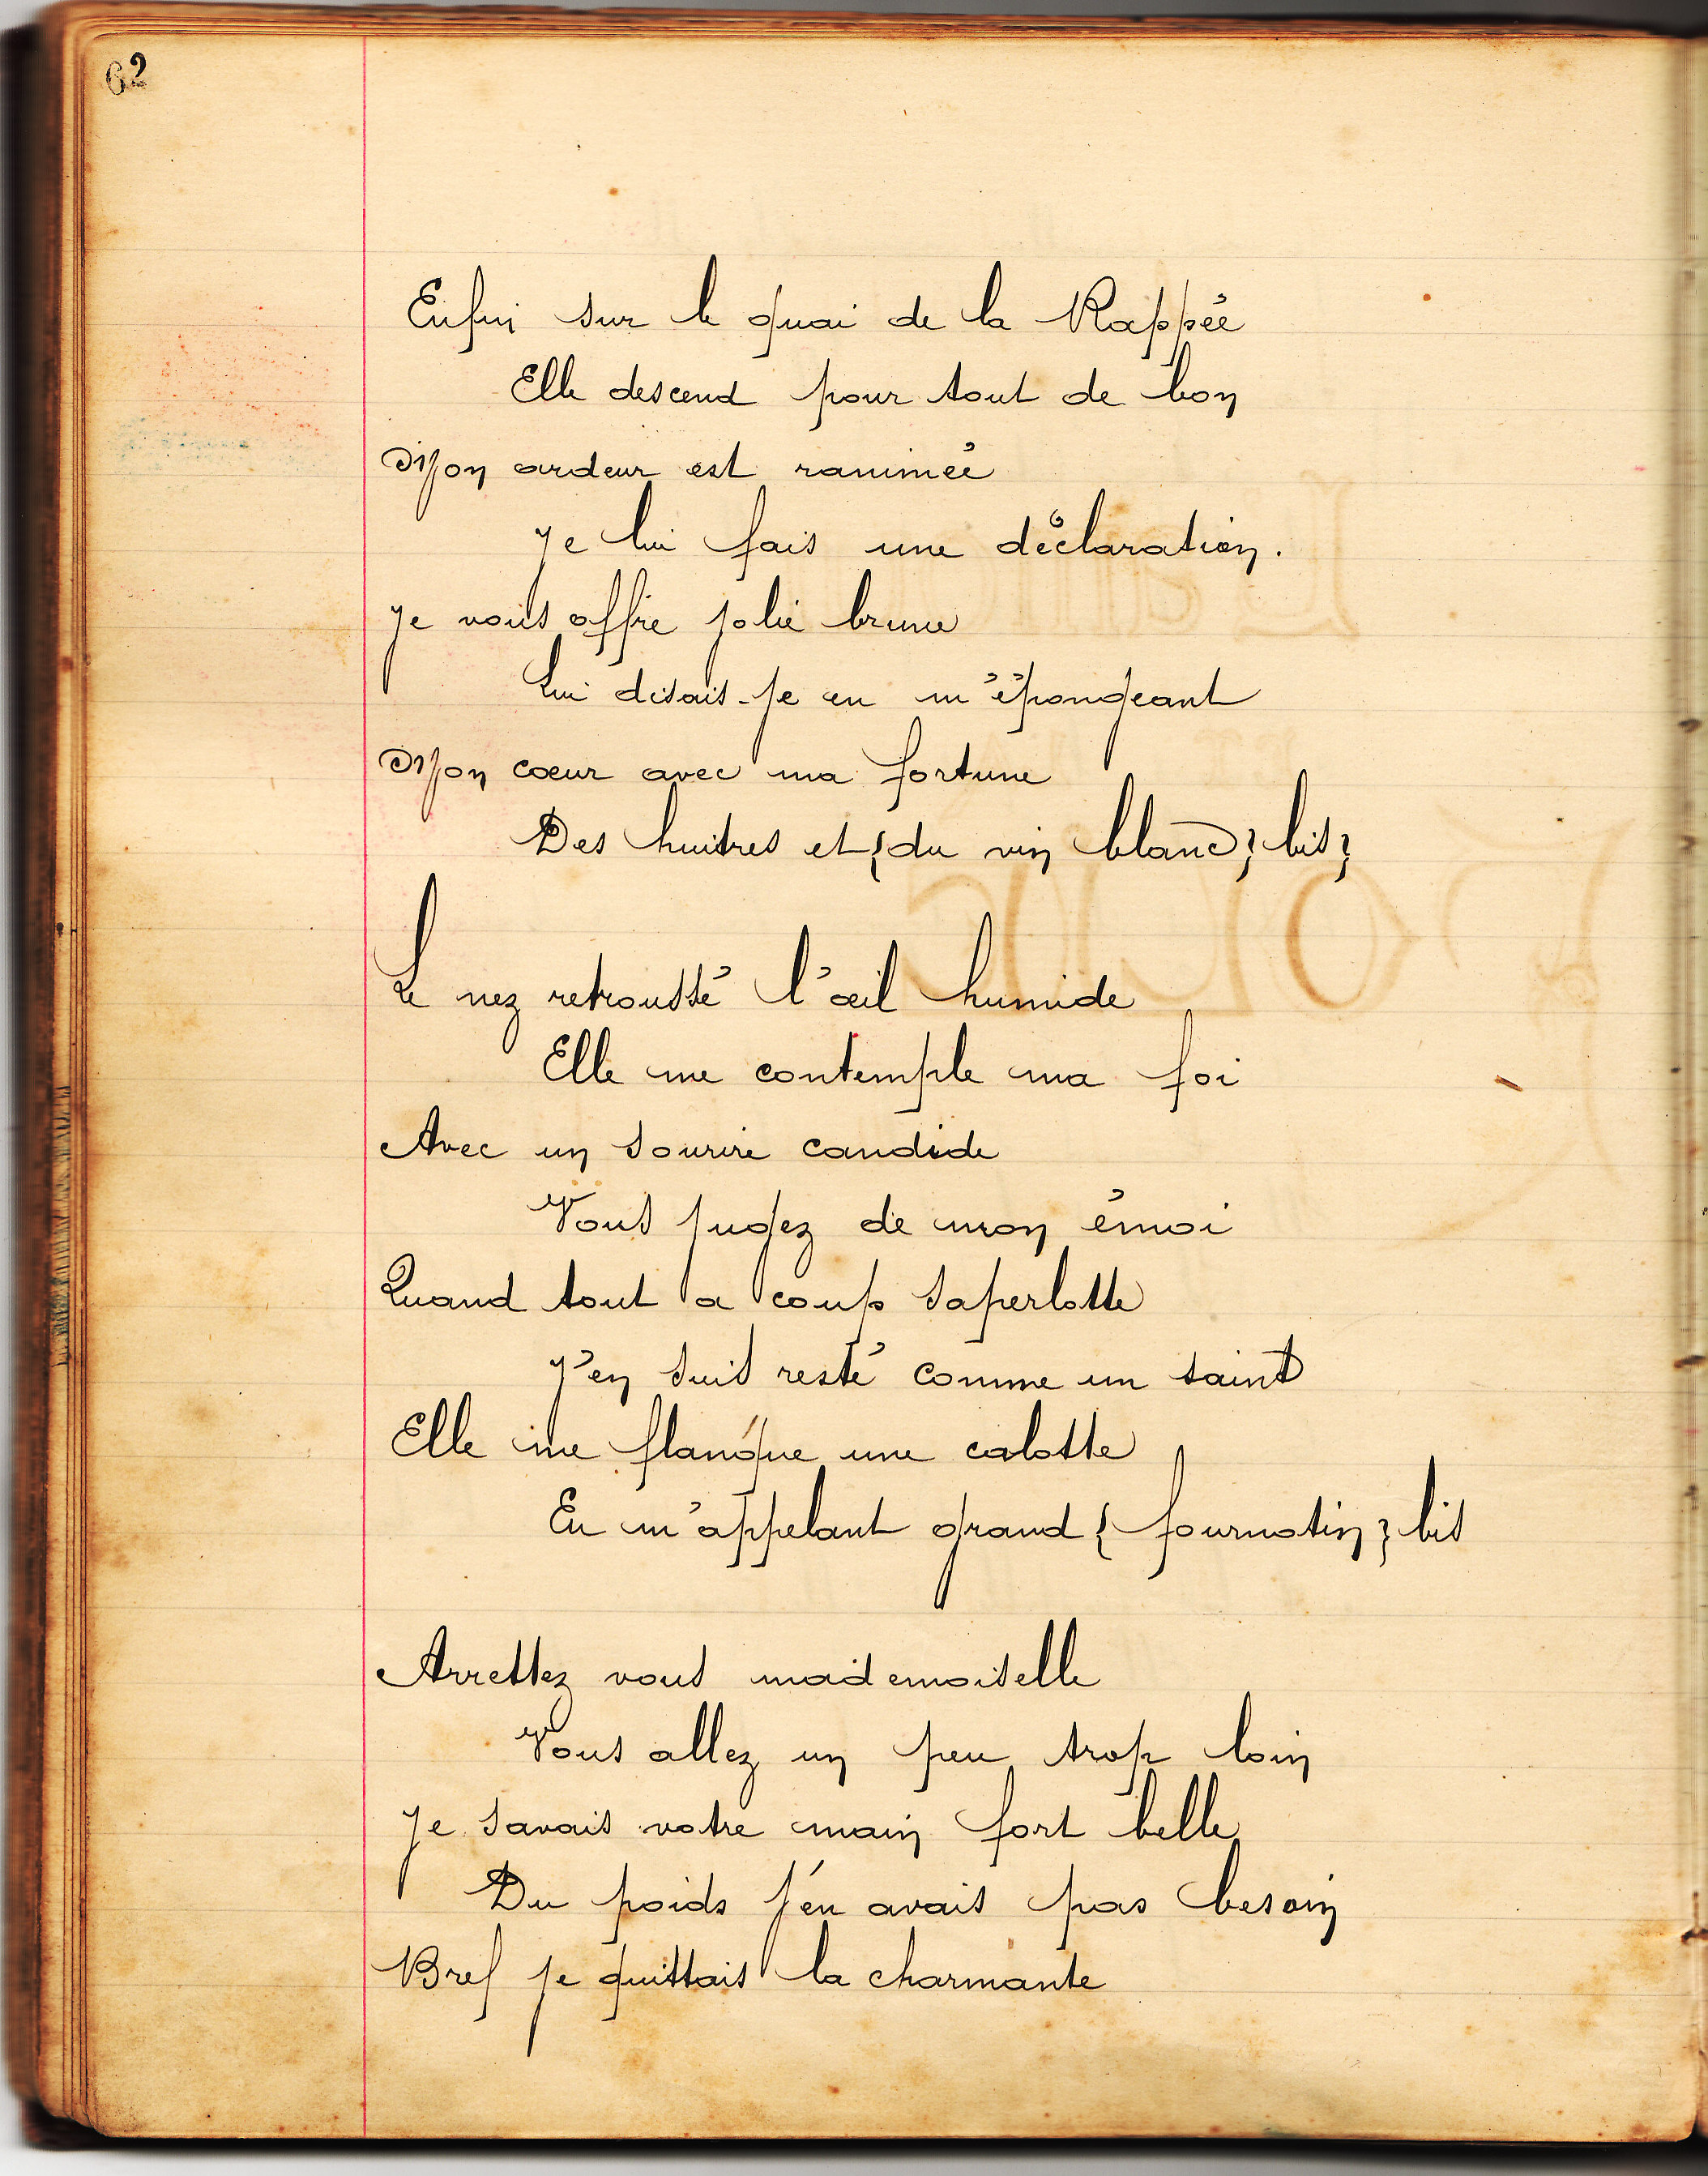 62
Enfin sur le quai de la Rappée
Elle descend pour tout de bon
Mon ardeur est ranimée
Je lui fais une déclaration.
Je vous offre jolie brune
Lui disais-je en m'épongeant
Mon cœur avec ma fortune
Des huitres et { du vin blanc } bis }
Le nez retroussé l'œil humide
Elle me contemple ma foi
Avec un sourire candide
Vous jugez de mon émoi
Quand tout a coup saperlotte
J'en suis resté comme un saint
Elle me flanque une calotte
En m'appelant grand { fournotin } bis
Arrettez vous mademoiselle
Vous allez un peu trop loin
Je savais votre main fort belle
Du poids j'en avais pas besoin
Bref je quittais la charmante